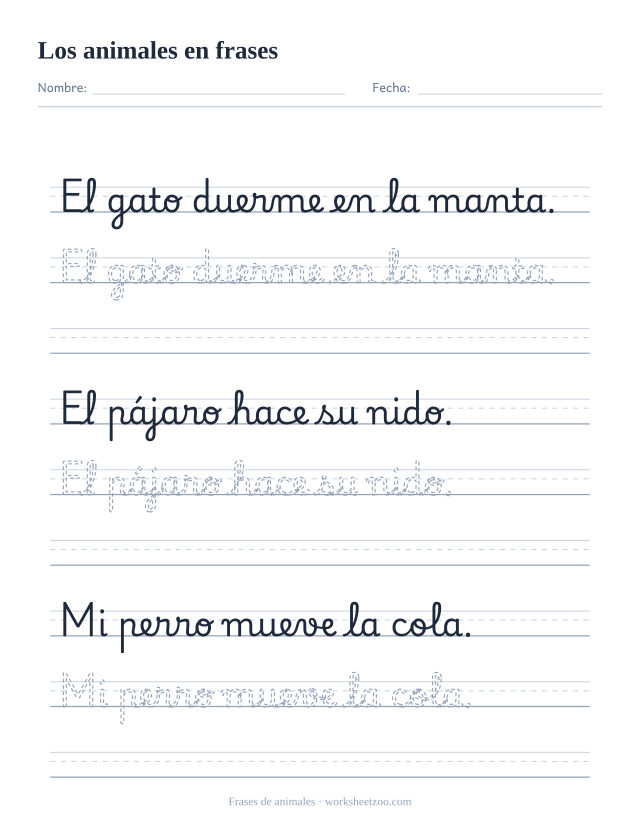 Los animales en frases
Nombre: Fecha:
El gato duerme en la manta.
El gato duerme en la manta.
El pájaro hace su nido.
El pájaro hace su nido.
Mi perro mueve la cola.
Mi perro mueve la cola.
Frases de animales · worksheetzoo.com